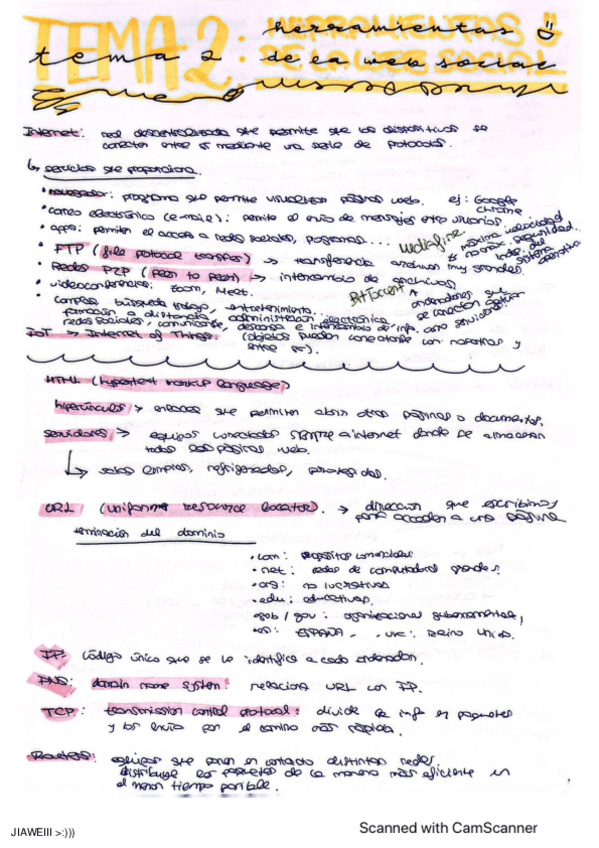 TEMA 2: HERRAMIENTAS
DE LA WEB SOCIAL
tema 2 herramientas
de la web social
Internet: red descentralizada que permite que los dispositivos se
conecten entre sí mediante una serie de protocolos.
servicios que proporciona.
• navegador: programa que permite visualizar páginas web. ej: Google
Chrome
• correo electrónico (e-mail): permite el envío de mensajes entre usuarios.
• apps: permiten el acceso a redes sociales, programas...
• FTP (file protocol transfer) → transferencia archivos muy grandes.
mediafire
máxima velocidad
no max. seguridad.
indep. del
sistema
operativo
• Redes P2P (peer to peer) → intercambio de archivos.
BitTorrent
ordenadores que
se conectan actúan
como servidores.
• videoconferencias: zoom, Meet.
• compras, búsqueda trabajo, entretenimiento,
formación a distancia, administración electrónica
redes sociales, comunicarte, descarga e intercambio de info.
IoT → Internet of Things. (objetos pueden conectarse con nosotros y
entre sí).
HTML (hypertext markup language)
hipervínculos → enlaces que permiten abrir otras páginas o documentos.
servidores → equipos conectados SIEMPRE a internet donde se almacenan
todas las páginas web.
salas limpias, refrigeradas, protegidas.
URL (uniform resource locator). → dirección que escribimos
para acceder a una página
terminación del dominio
• com: propósitos comerciales
• net: redes de computadoras grandes.
• org: no lucrativas
• edu: educativas.
• gob/gov: organizaciones gubernamentales
• es: ESPAÑA, .uk: Reino Unido.
IP: código único que se le identifica a cada ordenador.
DNS: domain name system: relaciona URL con IP.
TCP: transmission control protocol: divide la info en paquetes
y los envía por el camino más rápido.
Routers: equipos que ponen en contacto distintas redes
distribuye los paquetes de la manera más eficiente en
el menor tiempo posible.
JIAWEIII >:)))
Scanned with CamScanner